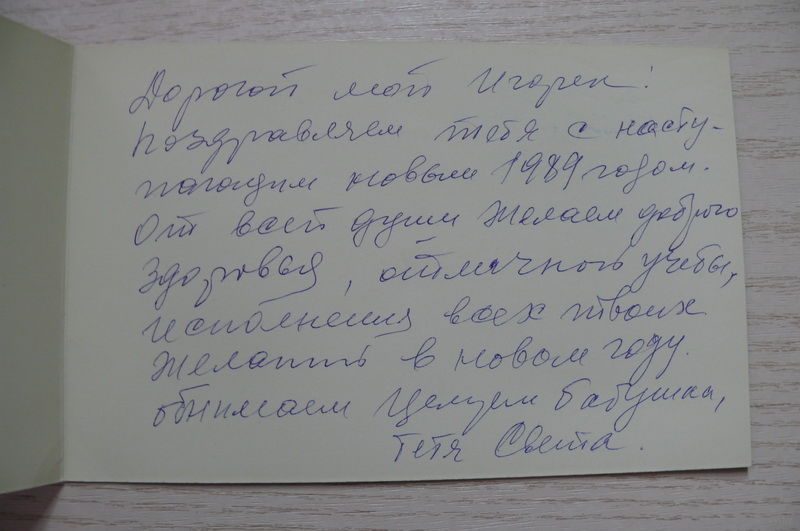 Дорогой мой Игорек!
Поздравляем тебя с насту-
пающим новым 1989 годом.
От всей души желаем доброго
здоровья, отличной учебы,
исполнения всех твоих
желаний в новом году.
Обнимаем Целуем бабушка,
тетя Света.